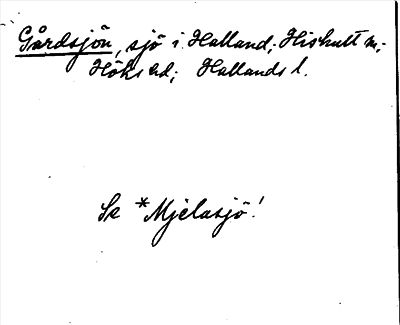 Gårdsjön, sjö i Halland; Hishult sn;
Höks hd; Hallands l.
Se *Mjelasjö!